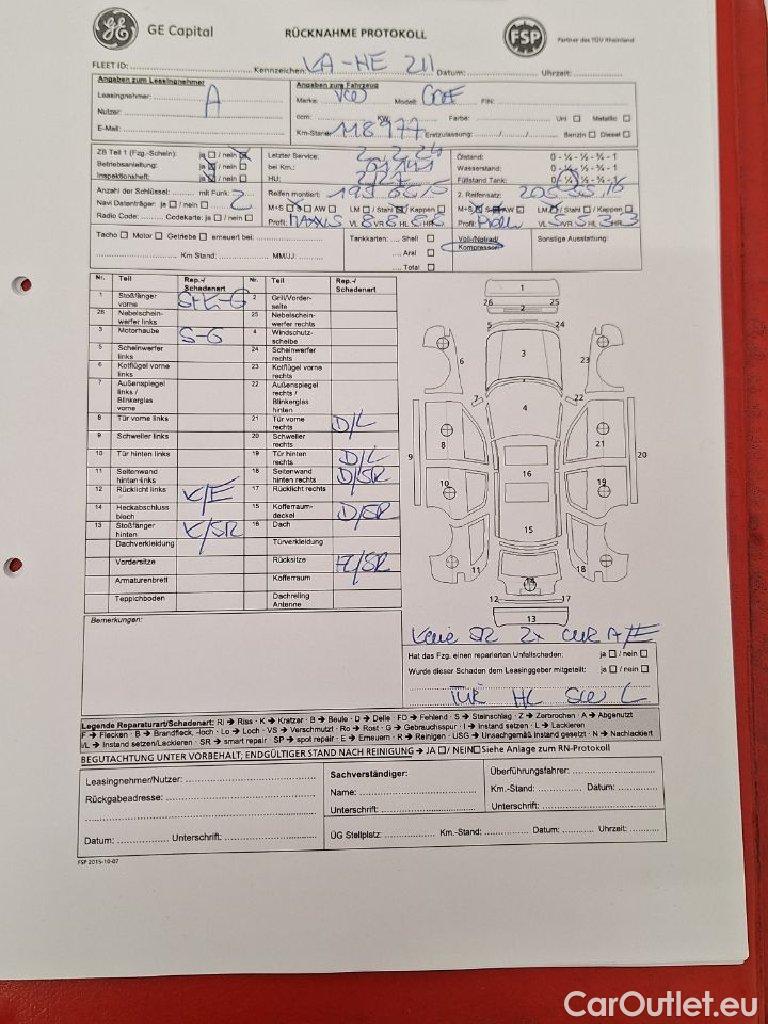 GE Capital
RÜCKNAHME PROTOKOLL
FSP
Partner des TÜV Rheinland
FLEET ID: Kennzeichen: Datum: Uhrzeit:
Angaben zum Leasingnehmer
Angaben zum Fahrzeug
Leasingnehmer: A
Marke: VW Modell: Golf FIN:
Nutzer:
ccm: KW Farbe: Uni Metallic
E-Mail:
Km-Stand: 118977 Erstzulassung: Benzin Diesel
ZB Teil 1 (Fzg.-Schein): ja / nein Letzter Service: Ölstand: 0 - ¼ - ½ - ¾ - 1
Betriebsanleitung: ja / nein bei Km.: Wasserstand: 0 - ¼ - ½ - ¾ - 1
Inspektionsheft: ja / nein HU: Füllstand Tank: 0 - ¼ - ½ - ¾ - 1
Anzahl der Schlüssel: mit Funk: 2 Reifen montiert: 195 65 15 2. Reifensatz: 205-55, 16
Navi Datenträger: ja / nein M+S S AW LM / Stahl / Kappen M+S S AW LM / Stahl / Kappen
Radio Code: Codekarte: ja / nein Profil: VL 6 VR 6 HL 6 HR 6 Profil: VL 5 VR 5 HL 3 HR 3
Tacho Motor Getriebe erneuert bei: Tankkarten: Shell Voll-/Notrad/ Sonstige Ausstattung:
Km Stand: MM/JJ: Aral Kompressor
Total
Nr. Teil Rep.-/ Schadenart Nr. Teil Rep.-/ Schadenart
1 Stoßfänger vorne 2 Grill/Vorderseite
26 Nebelscheinwerfer links 25 Nebelscheinwerfer rechts
3 Motorhaube S-G 4 Windschutzscheibe
5 Scheinwerfer links 24 Scheinwerfer rechts
6 Kotflügel vorne links 23 Kotflügel vorne rechts
7 Außenspiegel links / Blinkerglas vorne 22 Außenspiegel rechts / Blinkerglas hinten
8 Tür vorne links 21 Tür vorne rechts D/L
9 Schweller links 20 Schweller rechts
10 Tür hinten links 19 Tür hinten rechts D/L
11 Seitenwand hinten links 18 Seitenwand hinten rechts D/SR
12 Rücklicht links K/E 17 Rücklicht rechts
14 Heckabschlussblech 15 Kofferraumdeckel D/SR
13 Stoßfänger hinten K/SR 16 Dach
Dachverkleidung Türverkleidung
Vordersitze Rücksitze F/SR
Armaturenbrett Kofferraum
Teppichboden Dachreling Antenne
1
26 25
2
5 24
3
6 23
7 22
4
8 21
9 20
10 19
16
15
11 18
14
12 17
13
Bemerkungen:
Hat das Fzg. einen reparierten Unfallschaden: ja / nein
Wurde dieser Schaden dem Leasinggeber mitgeteilt: ja / nein
Legende Reparaturart/Schadenart: RI → Riss · K → Kratzer · B → Beule · D → Delle FD → Fehlend · S → Steinschlag · Z → Zerbrochen · A → Abgenutzt
F → Flecken · B → Brandfleck, -loch · Lo → Loch · VS → Verschmutzt · Ro → Rost · G → Gebrauchsspur · I → Instand setzen · L → Lackieren
I/L → Instand setzen/Lackieren · SR → smart repair · SP → spot repair · E → Erneuern · R → Reinigen · USG → Unsachgemäß instand gesetzt · N → Nachlackiert
BEGUTACHTUNG UNTER VORBEHALT; ENDGÜLTIGER STAND NACH REINIGUNG → JA / NEIN Siehe Anlage zum RN-Protokoll
Leasingnehmer/Nutzer: Sachverständiger: Überführungsfahrer:
Rückgabeadresse: Name: Km.-Stand: Datum:
Unterschrift: Unterschrift:
Datum: Unterschrift: ÜG Stellplatz: Km.-Stand: Datum: Uhrzeit:
FSP 2015-10-07
CarOutlet.eu